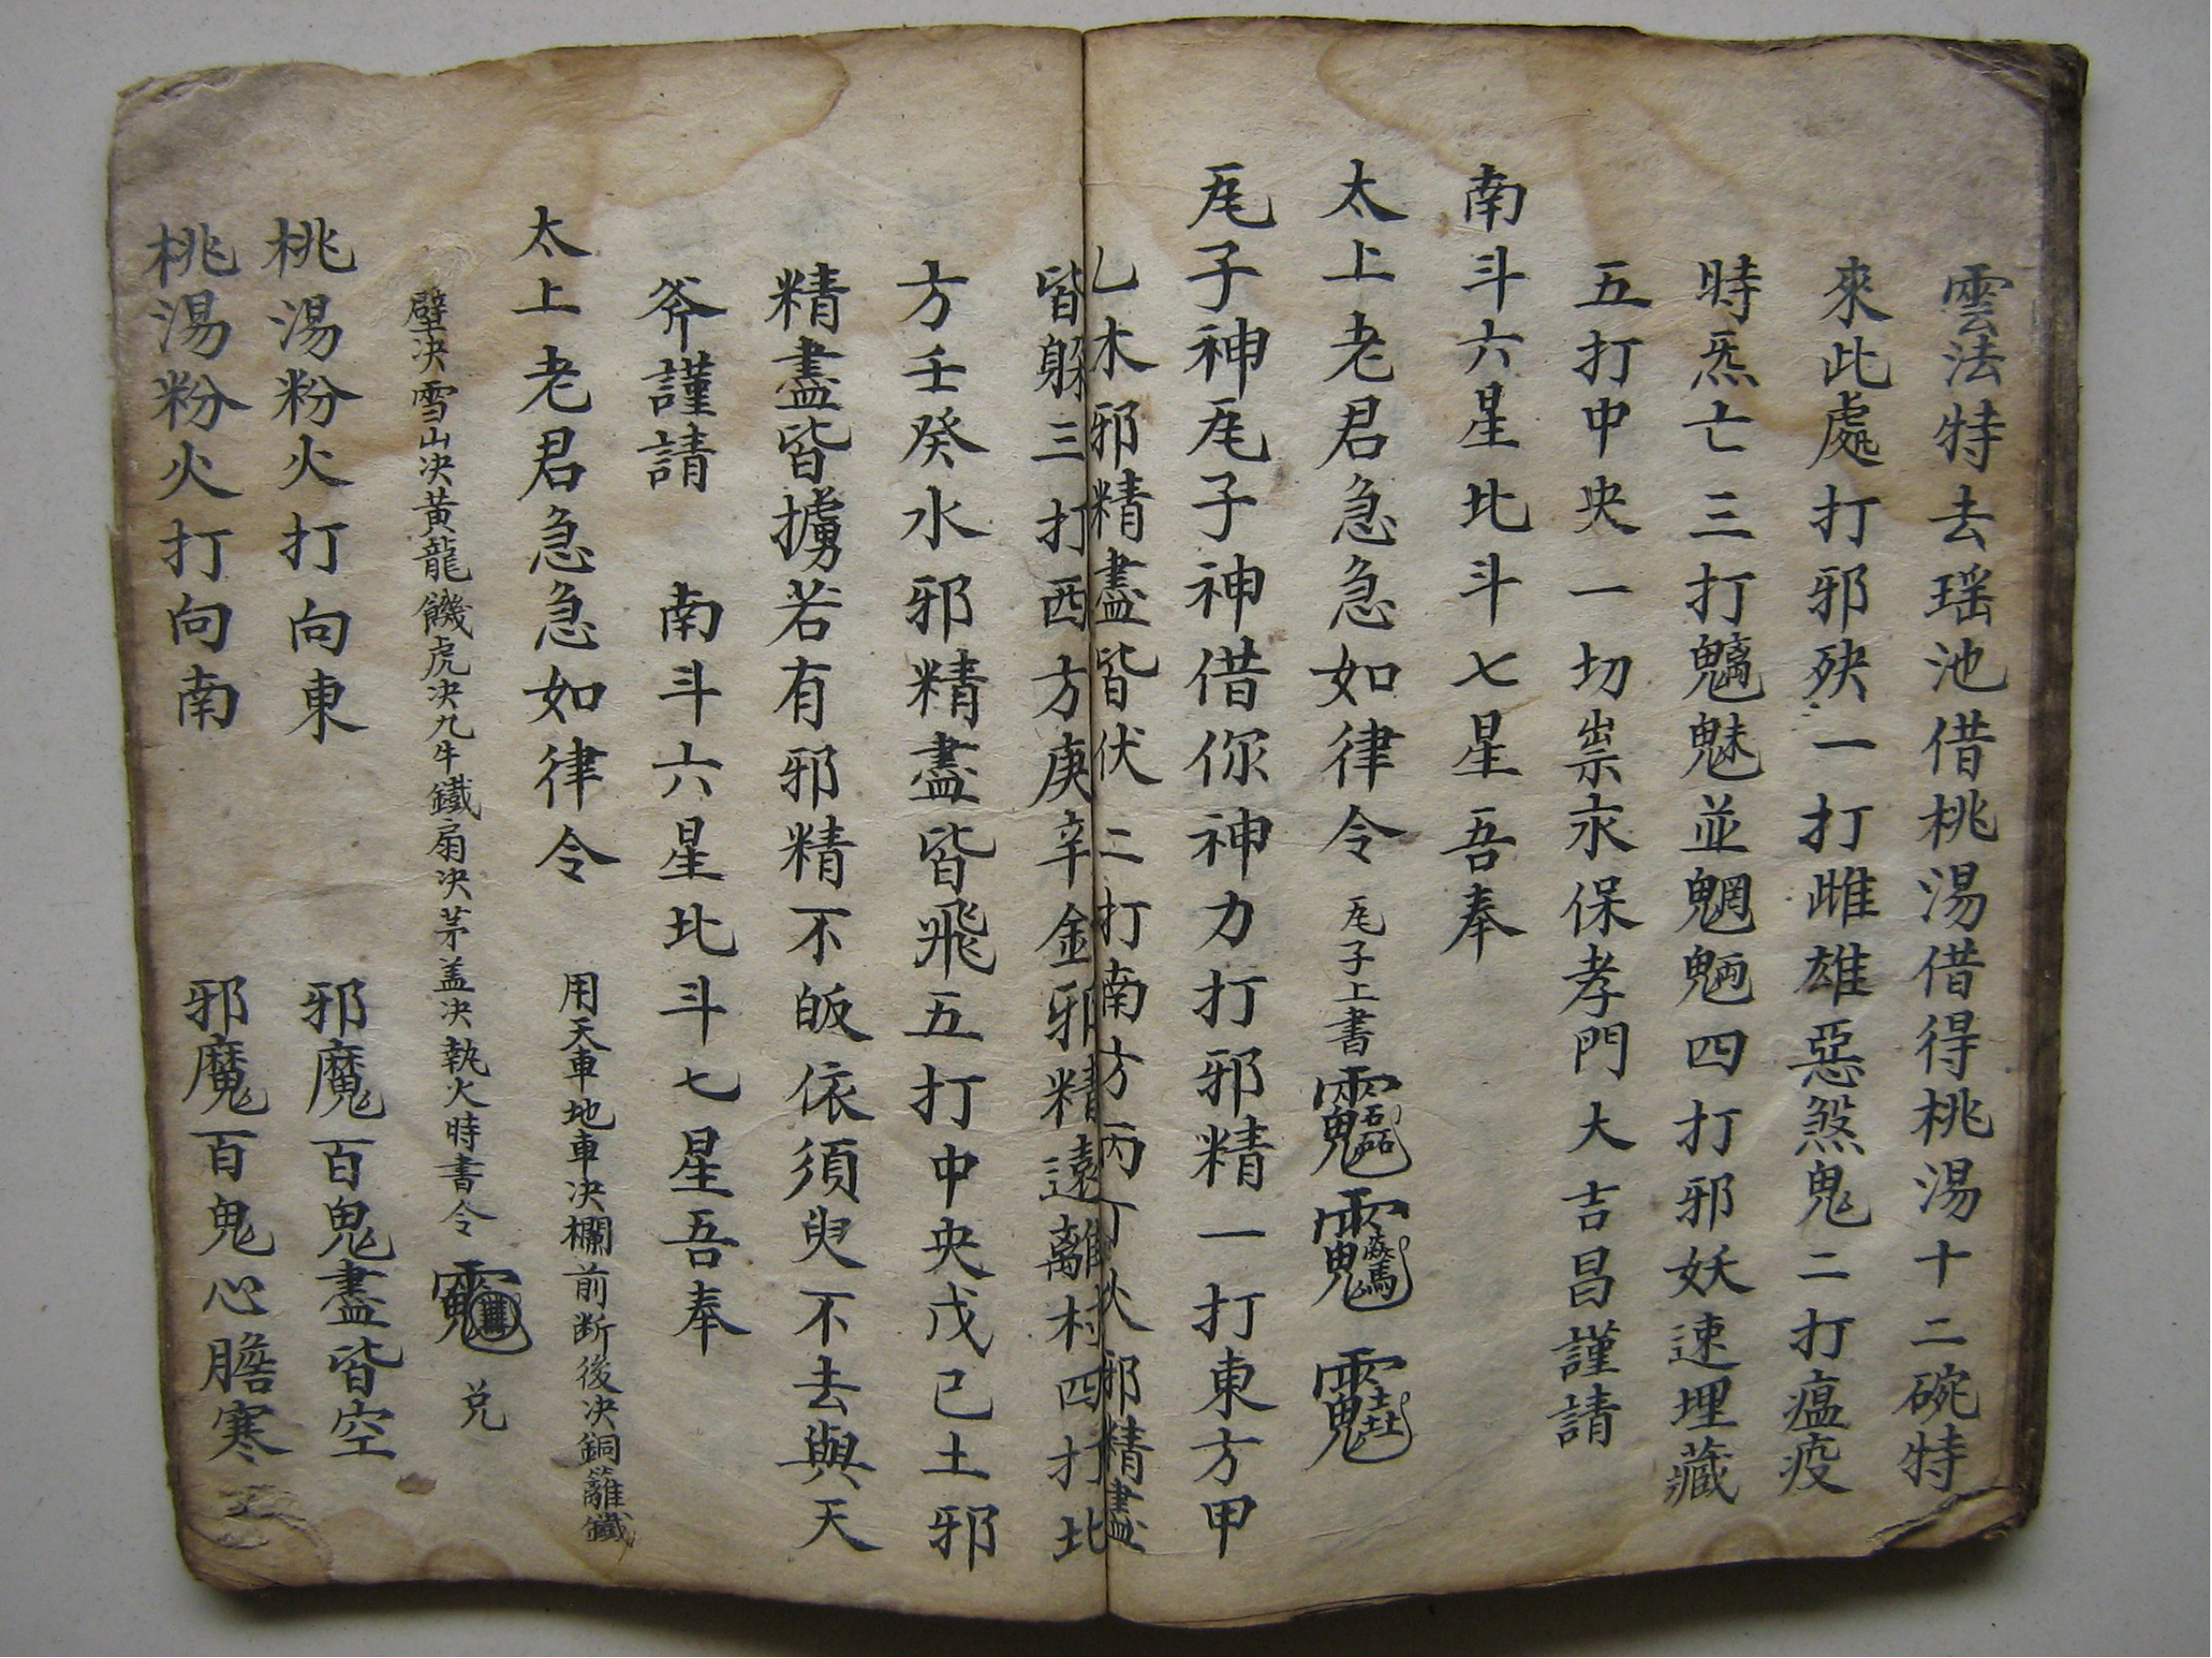 雲法特去瑶池借桃湯借得桃湯十二碗特
來此處打邪殃一打雌雄惡煞鬼二打瘟疫
時炁亡三打魑魅並魍魎四打邪妖速埋藏
五打中央一切祟永保孝門大吉昌謹請
南斗六星北斗七星吾奉
太上老君急急如律令 瓦子上書
瓦子神瓦子神借你神力打邪精一打東方甲
乙木邪精盡皆伏二打南方丙丁火邪精盡
皆躲三打西方庚辛金邪精遠離村四打北
方壬癸水邪精盡皆飛五打中央戊己土邪
精盡皆擄若有邪精不皈依須臾不去與天
斧謹請 南斗六星北斗七星吾奉
太上老君急急如律令 用天車地車决欄前断後决銅籬鐵
壁决雪山决黄龍饑虎决九牛鐵扇决茅盖决執火時書令 兑
桃湯粉火打向東 邪魔百鬼盡皆空
桃湯粉火打向南 邪魔百鬼心膽寒